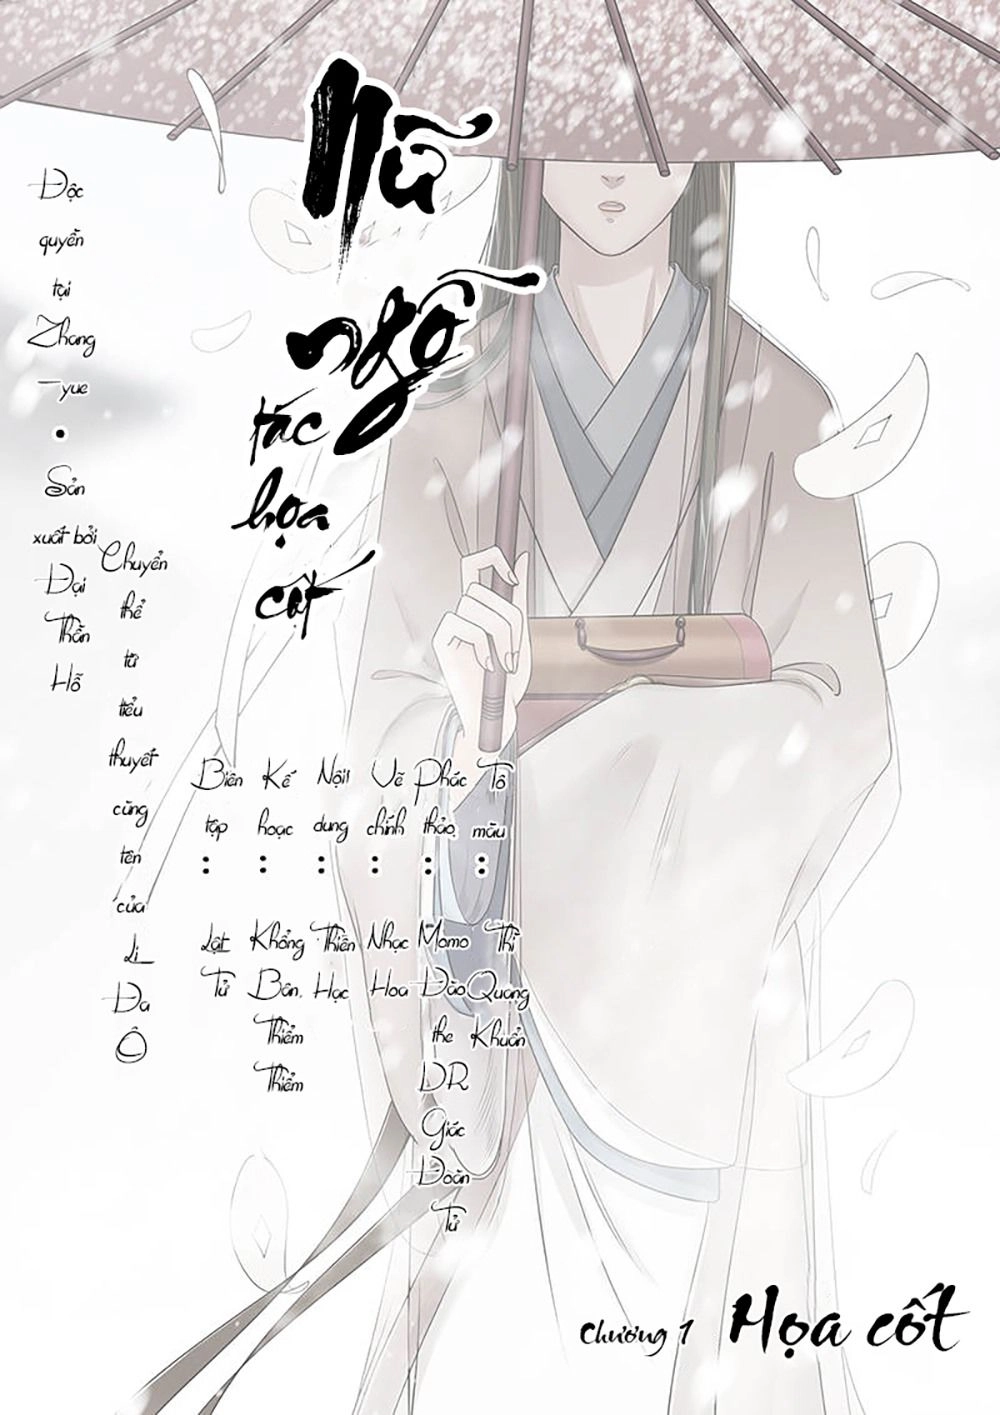 Nữ
ngỗ
tác
họa
cốt
Độc
quyền
tại
Zhang
-yue
•
Sản
xuất bởi
Đại
Thần
Hỗ
Chuyển
thể
từ
tiểu
thuyết
cùng
tên
của
Li
Đa
Ô
Biên
tập
:
Lật
Tử
Kế
hoạc
:
Khổng
Bân,
Thiểm
Thiểm
Nội1
dung
:
Thiên
Hạc
Vẽ
chính
:
Nhạc
Hoa
Phác
thảo,
:
Momo
Đào
the
DR
Giác
Đoàn
Tử
Tô
màu
:
Thì
Quang
Khuẩn
Chương 1 Họa cốt